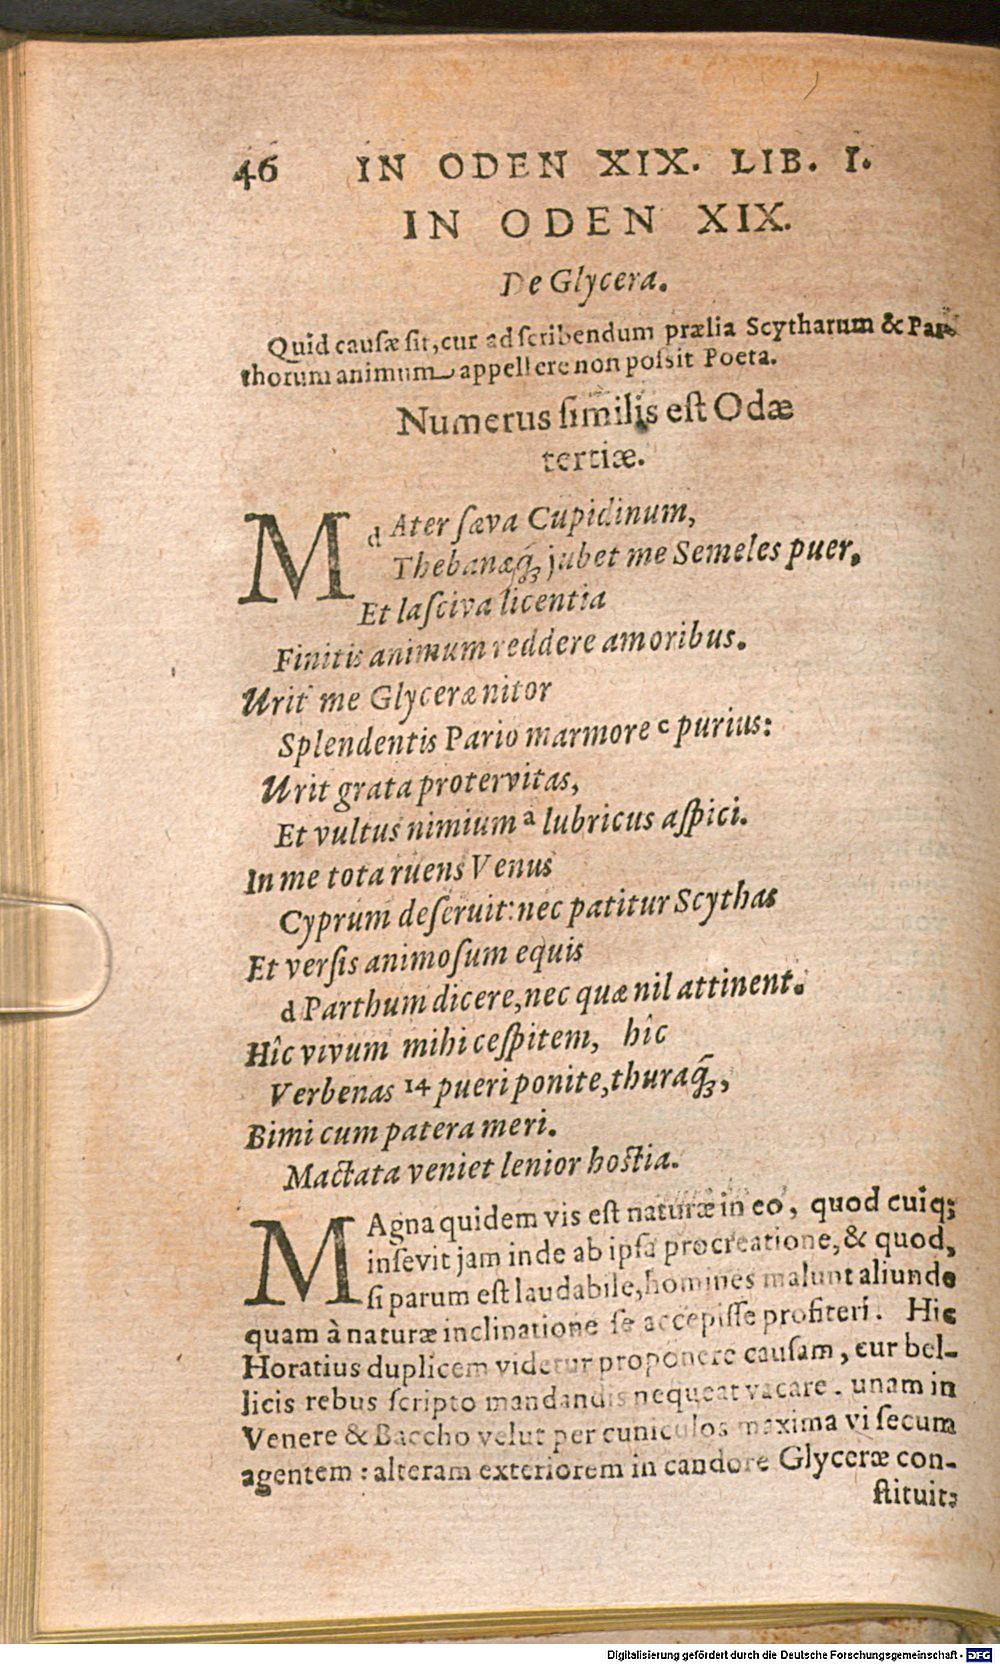 46 IN ODEN XIX. LIB. I.
IN ODEN XIX.
De Glycera.
Quid causæ sit, cur ad scribendum prælia Scytharum & Par-
thorum animum appellere non possit Poeta.
Numerus similis est Odæ
tertiæ.
M d Ater sæva Cupidinum,
Thebanæq́; jubet me Semeles puer,
Et lasciva licentia
Finitis animum reddere amoribus.
Urit me Glyceræ nitor
Splendentis Pario marmore c purius:
Urit grata protervitas,
Et vultus nimium a lubricus aspici.
In me tota ruens Venus
Cyprum deseruit: nec patitur Scythas
Et versis animosum equis
d Parthum dicere, nec quæ nil attinent.
Hîc vivum mihi cespitem, hîc
Verbenas 14 pueri ponite, thuraq́;,
Bimi cum patera meri.
Mactata veniet lenior hostia.
MAgna quidem vis est naturæ in eo, quod cuiq;
insevit jam inde ab ipsa procreatione, & quod,
si parum est laudabile, homines malunt aliunde
quam à naturæ inclinatione se accepisse profiteri. Hic
Horatius duplicem videtur proponere causam, cur bel-
licis rebus scripto mandandis nequeat vacare. unam in
Venere & Baccho velut per cuniculos maxima vi secum
agentem: alteram exteriorem in candore Glyceræ con-
stituit:
Digitalisierung gefördert durch die Deutsche Forschungsgemeinschaft - DFG